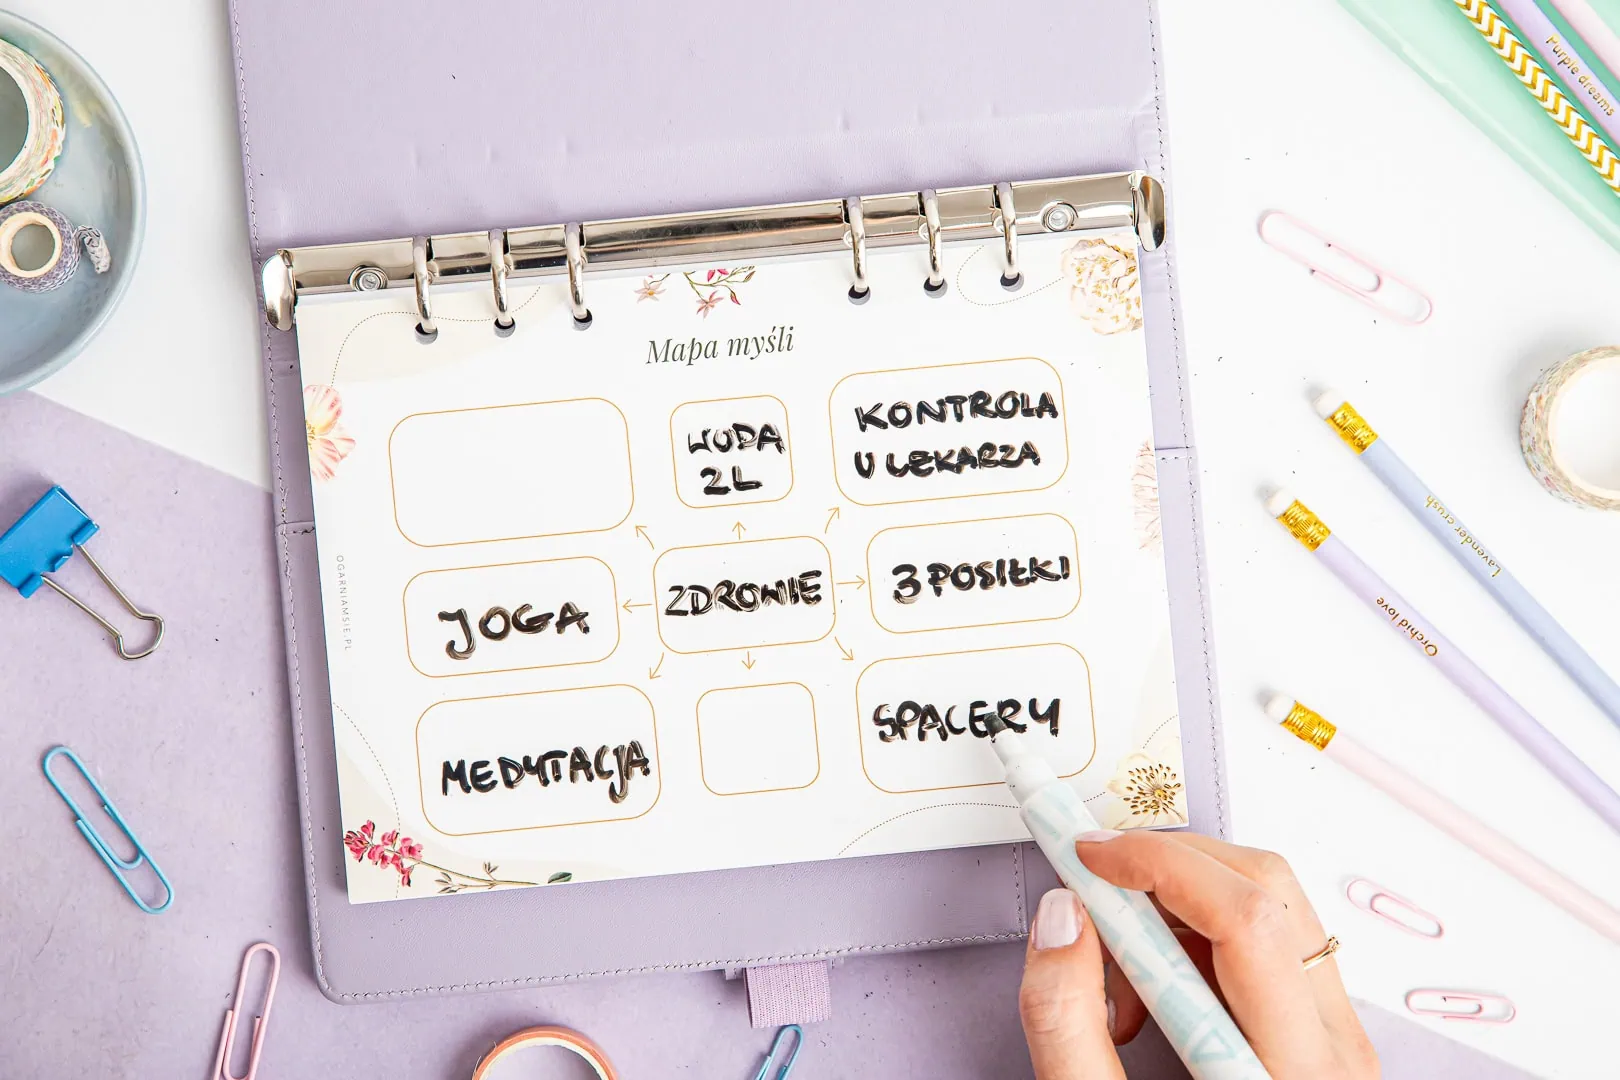 Purple dreams
Mapa myśli
WODA
2L
KONTROLA
U LEKARZA
JOGA
ZDROWIE
3 POSIŁKI
MEDYTACJA
SPACERY
OGARNIAMSIE.PL
Lavender crush
Orchid love